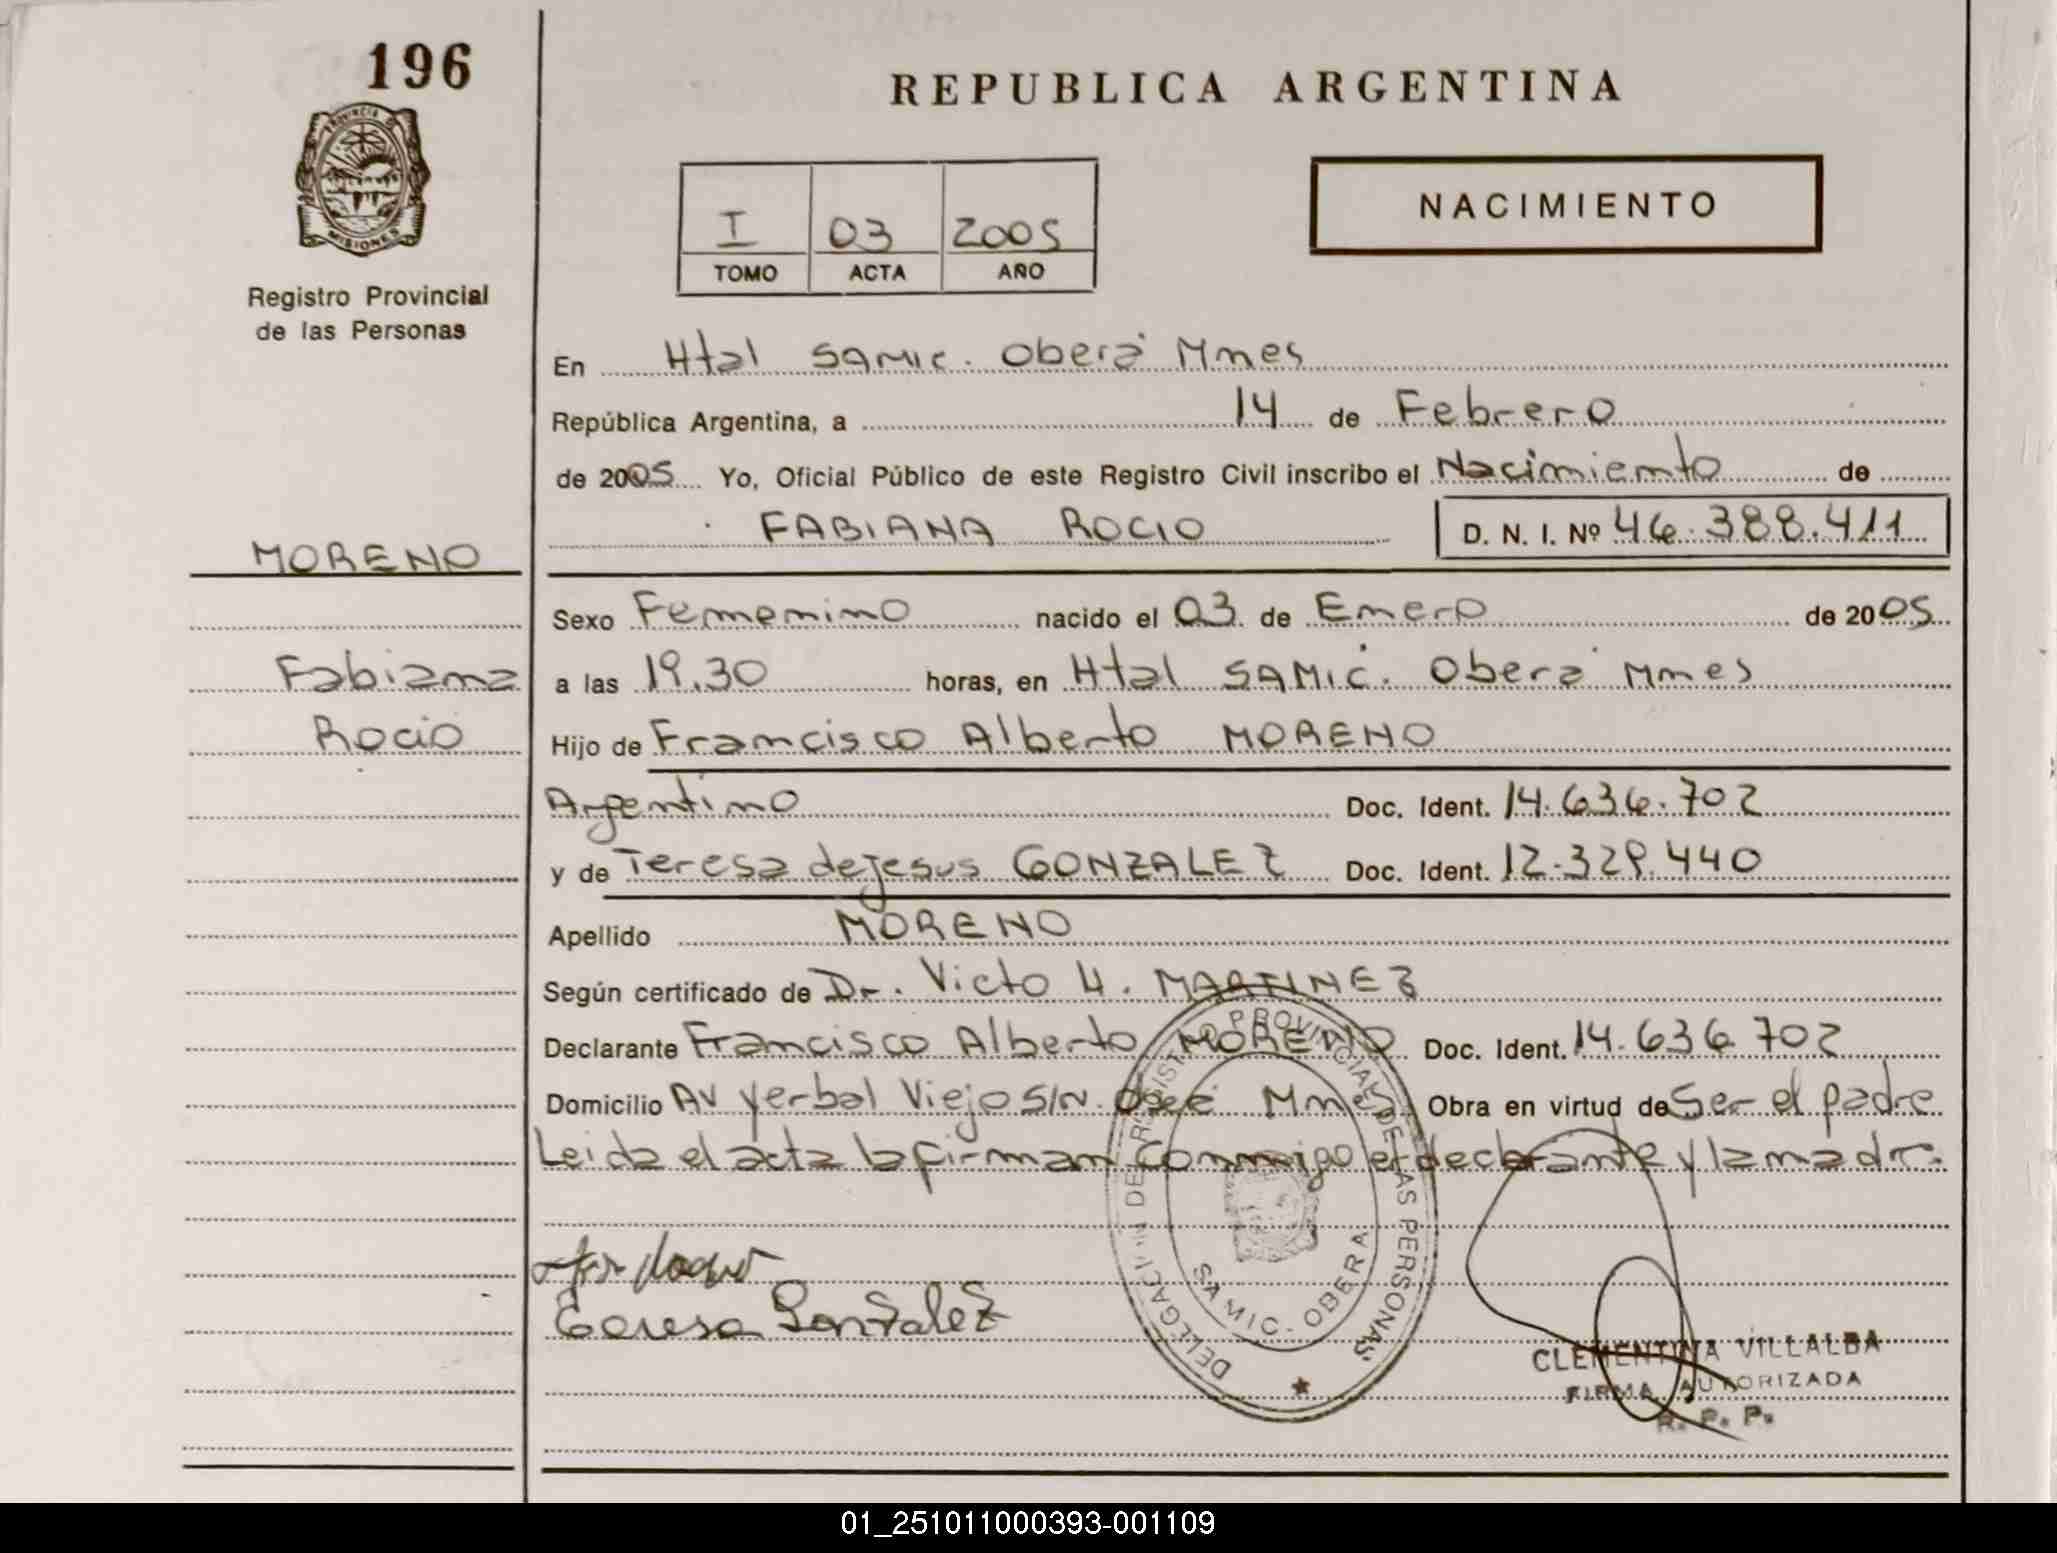 196
REPUBLICA ARGENTINA
PROVINCIA DE
MISIONES
Registro Provincial
de las Personas
I 03 2005
TOMO ACTA AÑO
NACIMIENTO
En Htal SAMIC. Oberá Mnes
República Argentina, a 14 de Febrero
de 2005 Yo, Oficial Público de este Registro Civil inscribo el Nacimiento de
FABIANA ROCIO D. N. I. Nº 46.388.411
MORENO
Sexo Femenino nacido el 03 de Enero de 2005
Fabiana
a las 19.30 horas, en Htal SAMIC. Oberá Mnes
Rocio
Hijo de Francisco Alberto MORENO
Argentino Doc. Ident. 14.636.702
y de Teresa de Jesus GONZALEZ Doc. Ident. 12.329.440
Apellido MORENO
Según certificado de Dr. Victo H. MARTINEZ
Declarante Francisco Alberto MORENO Doc. Ident. 14.636.702
Domicilio AV Yerbal Viejo S/N. Mnes Obra en virtud de Ser el padre
Leida el acta la firman conmigo el declarante y la madre.
Teresa Gonzalez
DELEGACION DE REGISTRO PROVINCIAL DE LAS PERSONAS
SAMIC - OBERA
CLEMENTINA VILLALBA
FIRMA AUTORIZADA
R. P. P.
01_251011000393-001109